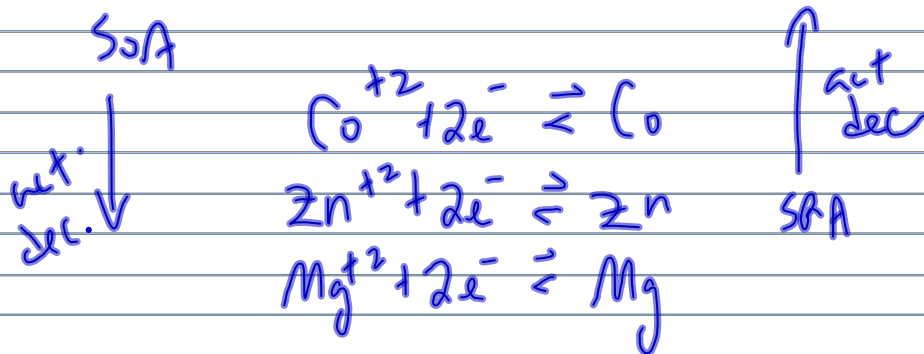 SOA
act. dec.
Co⁺² + 2e⁻ ⇌ Co
Zn⁺² + 2e⁻ ⇌ Zn
Mg⁺² + 2e⁻ ⇌ Mg
act dec
SRA